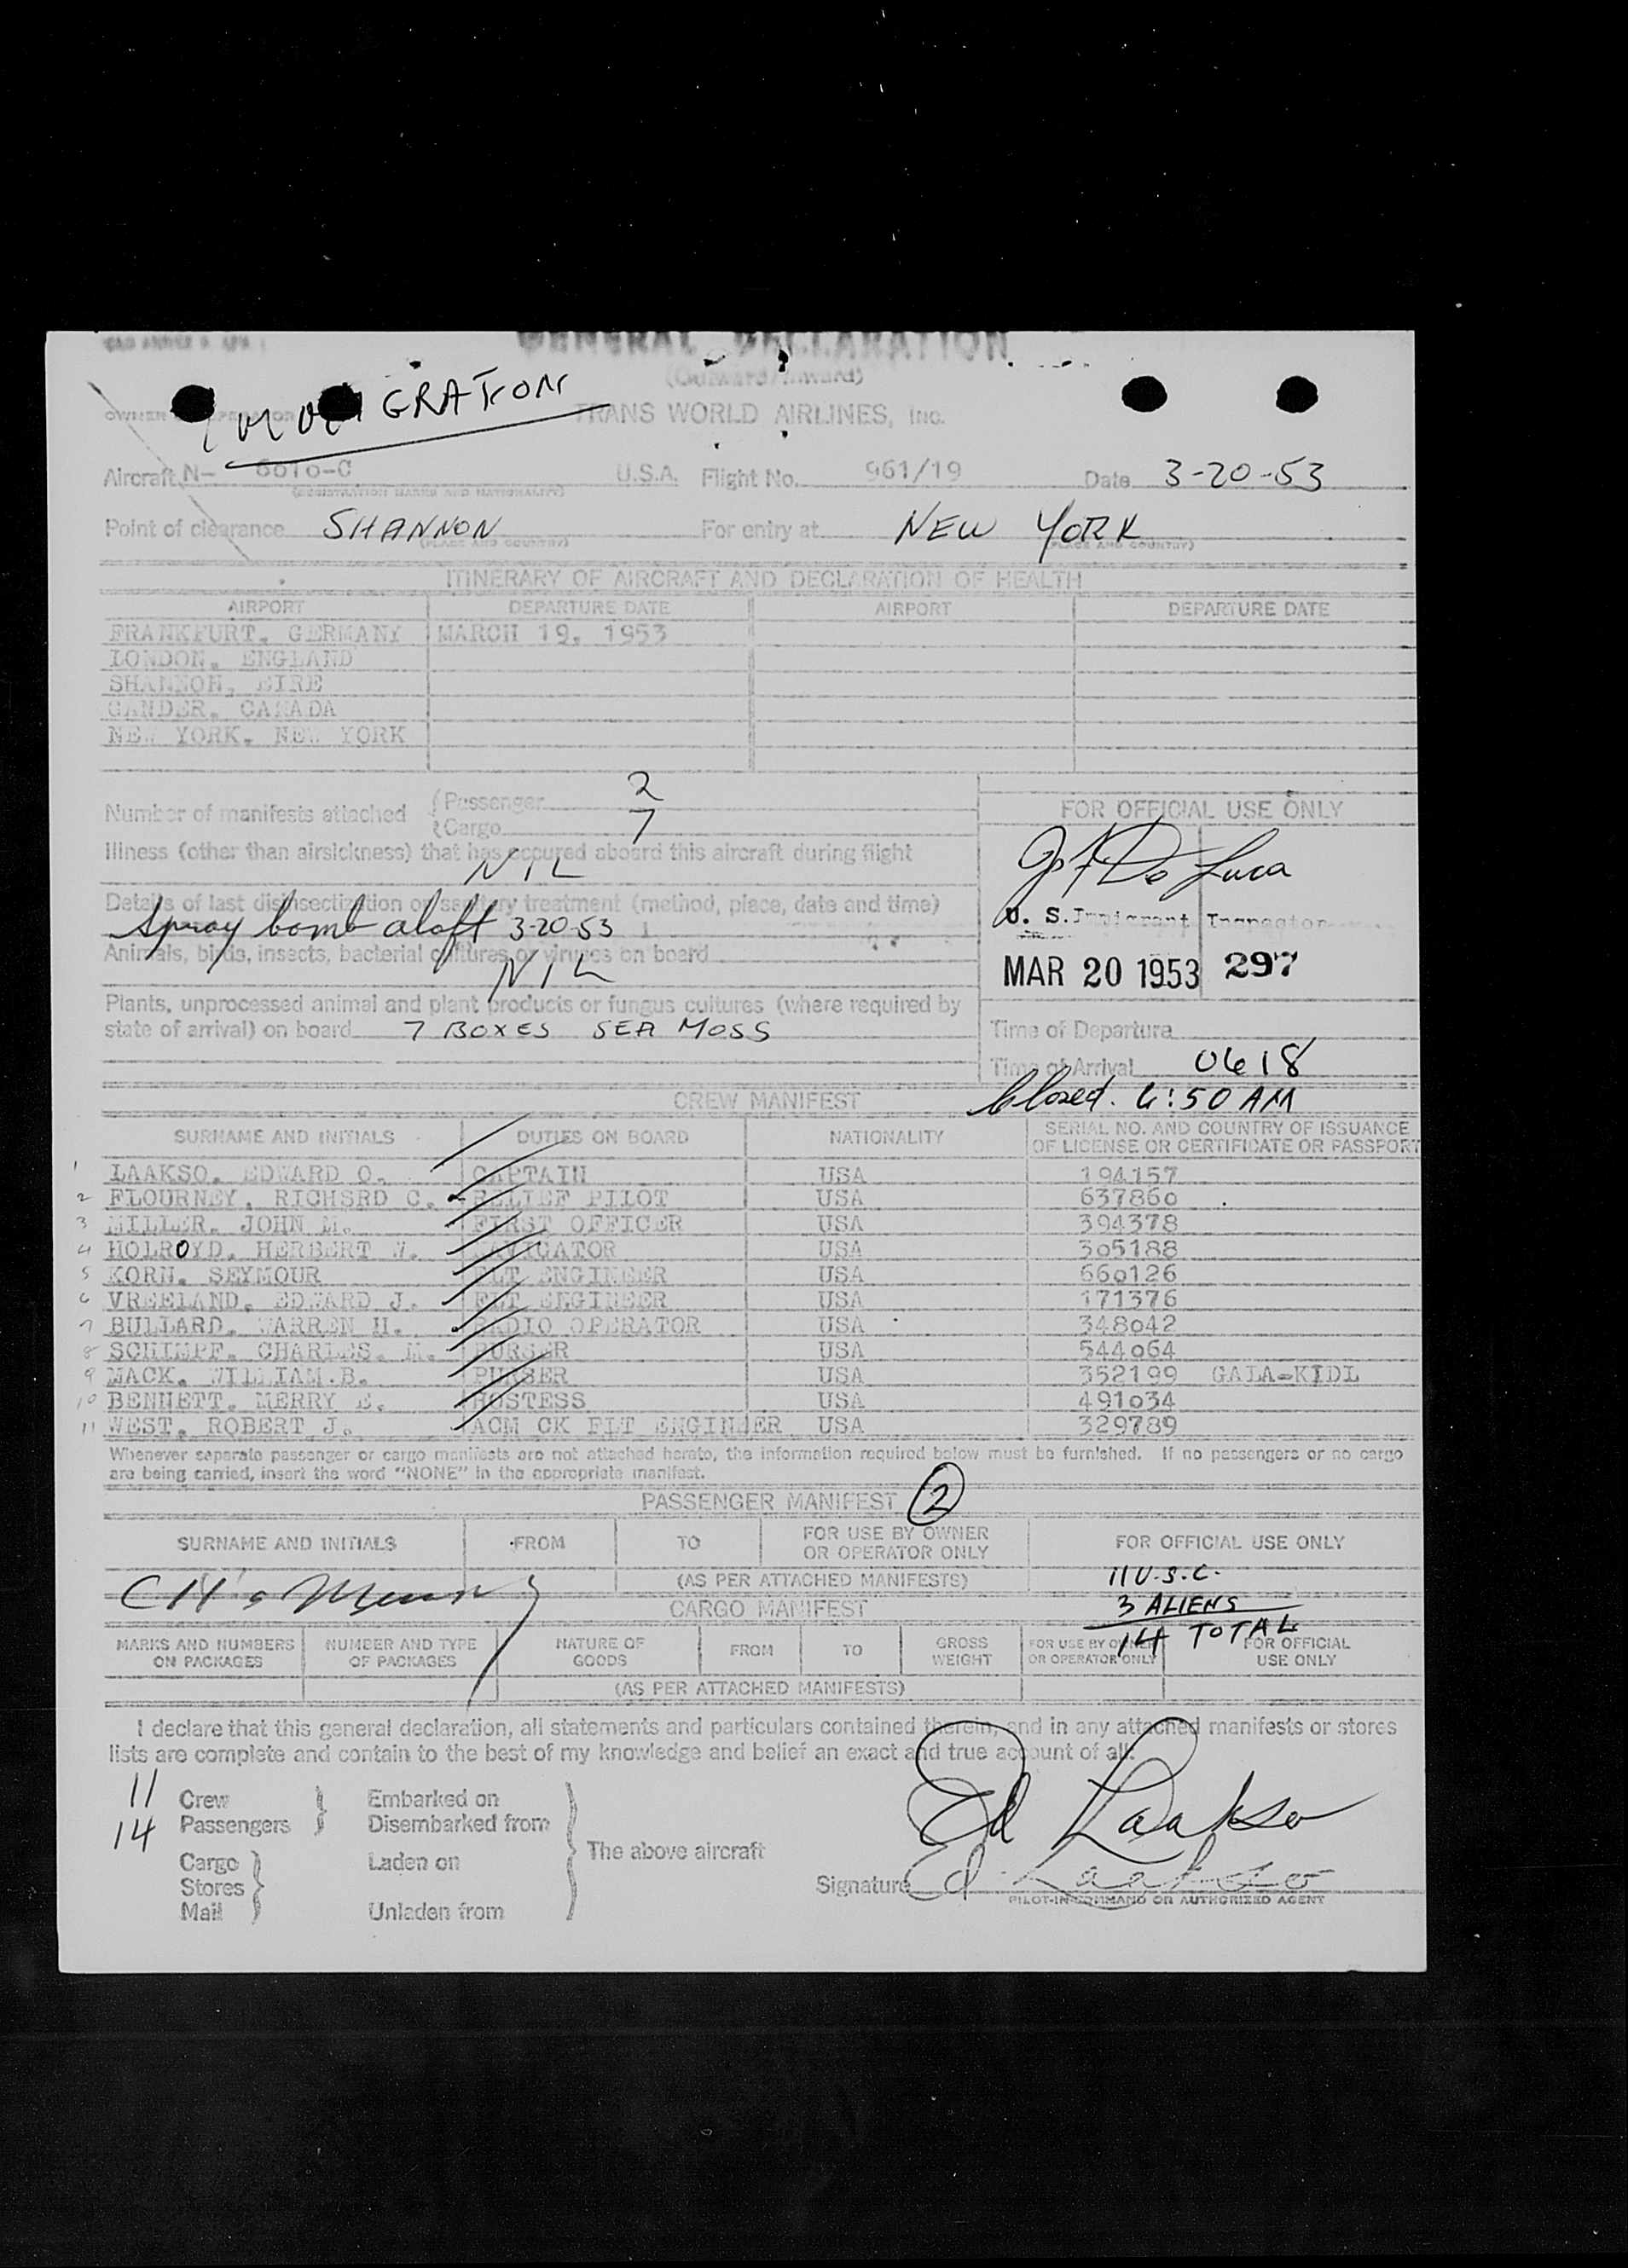 GENERAL DECLARATION
(Outward/Inward)
IMMIGRATION
TRANS WORLD AIRLINES, Inc.
Aircraft N- 6016-C U.S.A. Flight No. 961/19 Date 3-20-53
(REGISTRATION MARKS AND NATIONALITY)
Point of clearance SHANNON For entry at NEW YORK
(PLACE AND COUNTRY) (PLACE AND COUNTRY)
ITINERARY OF AIRCRAFT AND DECLARATION OF HEALTH
AIRPORT DEPARTURE DATE AIRPORT DEPARTURE DATE
FRANKFURT, GERMANY MARCH 19, 1953
LONDON, ENGLAND
SHANNON, EIRE
GANDER, CANADA
NEW YORK, NEW YORK
Number of manifests attached
Passenger 2
Cargo 7
Illness (other than airsickness) that has occured aboard this aircraft during flight
NIL
Details of last disinsectization or sanitary treatment (method, place, date and time)
Spray bomb aloft 3-20-53
Animals, birds, insects, bacterial cultures or viruses on board
NIL
Plants, unprocessed animal and plant products or fungus cultures (where required by
state of arrival) on board 7 BOXES SEA MOSS
FOR OFFICIAL USE ONLY
De Luca
U. S. Immigrant Inspector
MAR 20 1953 297
Time of Departure
Time of Arrival 0618
Closed. 6:50 AM
CREW MANIFEST
SURNAME AND INITIALS DUTIES ON BOARD NATIONALITY SERIAL NO. AND COUNTRY OF ISSUANCE
OF LICENSE OR CERTIFICATE OR PASSPORT
1 LAAKSO, EDWARD O. CAPTAIN USA 194157
2 FLOURNEY, RICHSRD C. RELIEF PILOT USA 637860
3 MILLER, JOHN M. FIRST OFFICER USA 394378
4 HOLROYD, HERBERT W. NAVIGATOR USA 305188
5 KORN, SEYMOUR FLT ENGINEER USA 660126
6 VREELAND, EDWARD J. FLT ENGINEER USA 171376
7 BULLARD, WARREN H. RADIO OPERATOR USA 348042
8 SCHIMPF, CHARLES. M. PURSER USA 544064
9 MACK, WILLIAM.B. PURSER USA 352199 GALA-KIDL
10 BENNETT, MERRY E. HOSTESS USA 491034
11 WEST, ROBERT J. ACM CK FLT ENGINEER USA 329789
Whenever separate passenger or cargo manifests are not attached hereto, the information required below must be furnished. If no passengers or no cargo
are being carried, insert the word "NONE" in the appropriate manifest.
PASSENGER MANIFEST 2
SURNAME AND INITIALS FROM TO FOR USE BY OWNER
OR OPERATOR ONLY FOR OFFICIAL USE ONLY
(AS PER ATTACHED MANIFESTS) 11 U.S.C.
3 ALIENS
14 TOTAL
CARGO MANIFEST
MARKS AND NUMBERS
ON PACKAGES NUMBER AND TYPE
OF PACKAGES NATURE OF
GOODS FROM TO GROSS
WEIGHT FOR USE BY OWNER
OR OPERATOR ONLY FOR OFFICIAL
USE ONLY
(AS PER ATTACHED MANIFESTS)
I declare that this general declaration, all statements and particulars contained therein, and in any attached manifests or stores
lists are complete and contain to the best of my knowledge and belief an exact and true account of all:
11 Crew
14 Passengers
Embarked on
Disembarked from
Cargo
Stores
Mail
Laden on
Unladen from
The above aircraft
Ed Laakso
Signature Ed Laakso
PILOT-IN-COMMAND OR AUTHORIZED AGENT